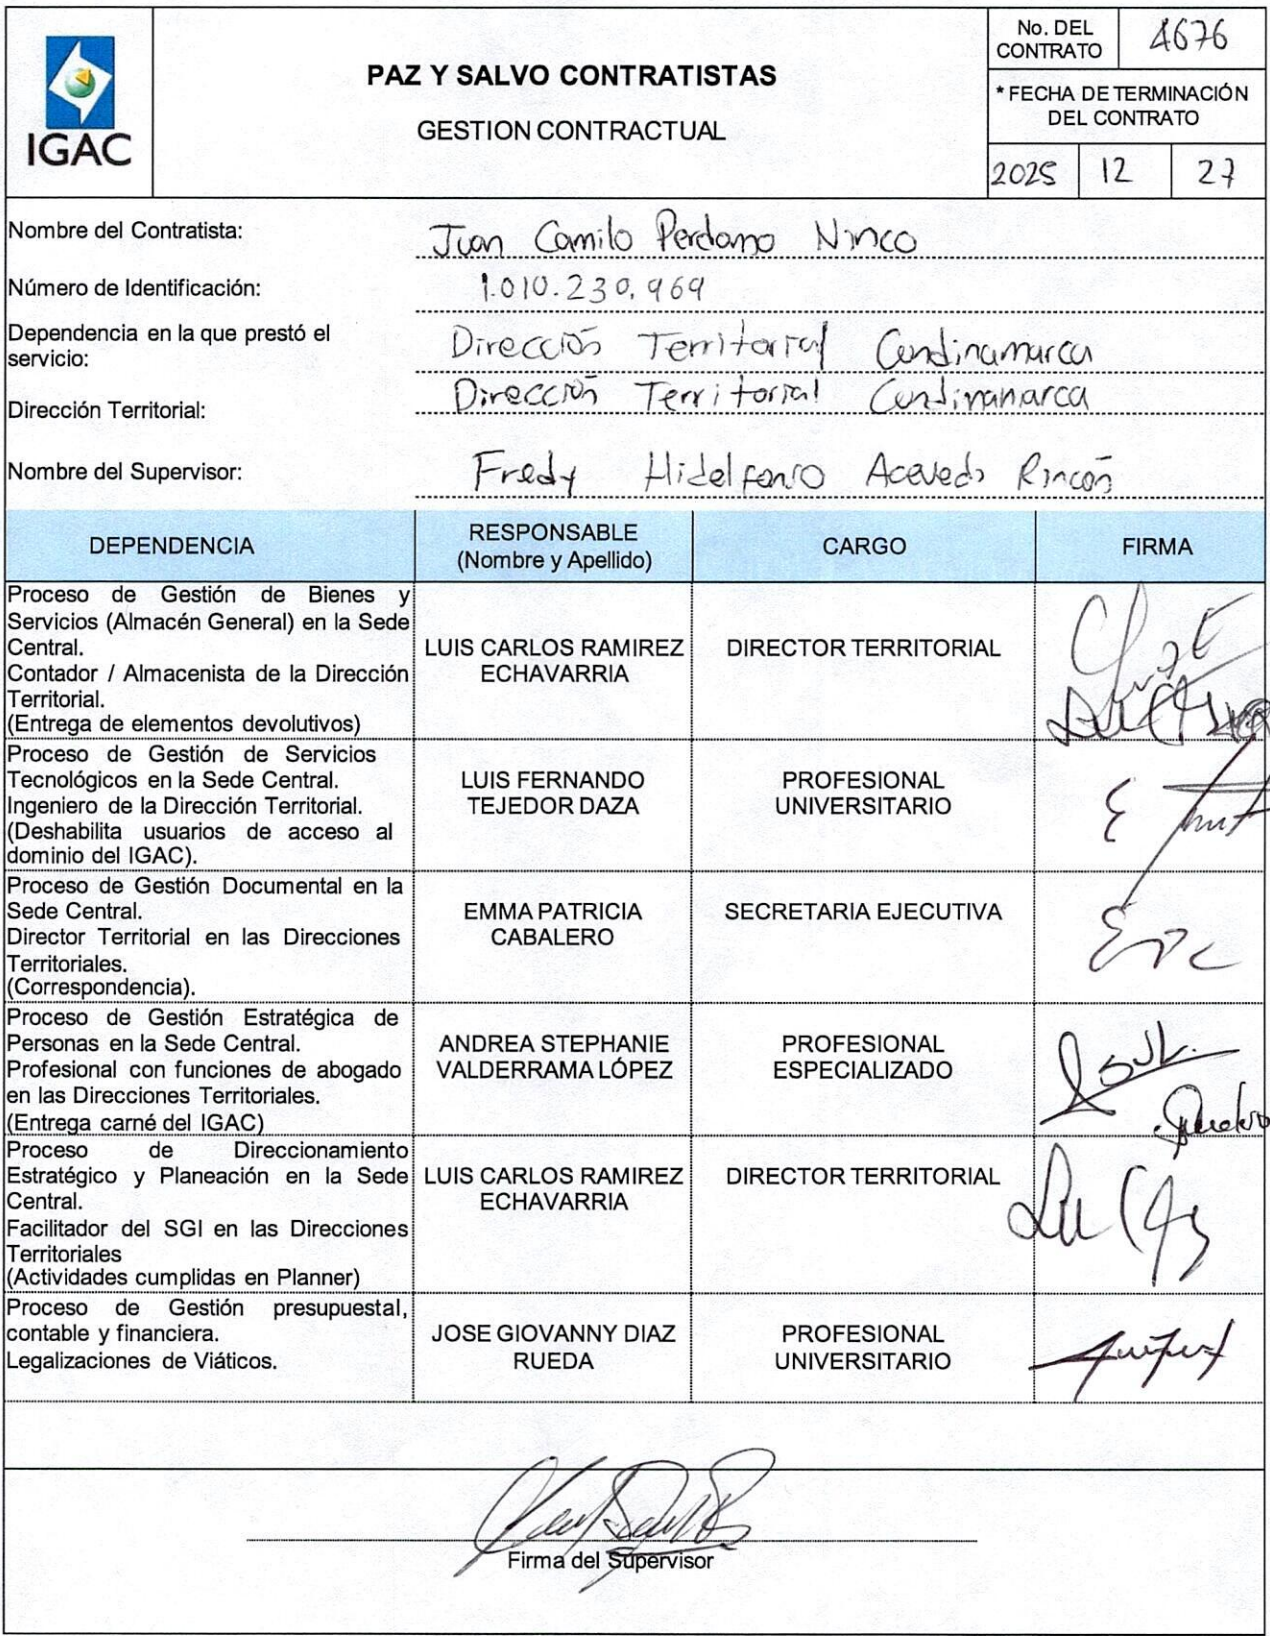 IGAC
PAZ Y SALVO CONTRATISTAS
GESTION CONTRACTUAL
No. DEL CONTRATO 4676
* FECHA DE TERMINACIÓN
DEL CONTRATO
2025 12 27
Nombre del Contratista: Juan Camilo Perdomo Ninco
Número de Identificación: 1.010.230.969
Dependencia en la que prestó el
servicio: Dirección Territorial Cundinamarca
Dirección Territorial: Dirección Territorial Cundinamarca
Nombre del Supervisor: Fredy Hidelfonso Acevedo Rincón
DEPENDENCIA
RESPONSABLE
(Nombre y Apellido)
CARGO
FIRMA
Proceso de Gestión de Bienes y
Servicios (Almacén General) en la Sede
Central.
Contador / Almacenista de la Dirección
Territorial.
(Entrega de elementos devolutivos)
LUIS CARLOS RAMIREZ
ECHAVARRIA
DIRECTOR TERRITORIAL
Proceso de Gestión de Servicios
Tecnológicos en la Sede Central.
Ingeniero de la Dirección Territorial.
(Deshabilita usuarios de acceso al
dominio del IGAC).
LUIS FERNANDO
TEJEDOR DAZA
PROFESIONAL
UNIVERSITARIO
Proceso de Gestión Documental en la
Sede Central.
Director Territorial en las Direcciones
Territoriales.
(Correspondencia).
EMMA PATRICIA
CABALERO
SECRETARIA EJECUTIVA
Proceso de Gestión Estratégica de
Personas en la Sede Central.
Profesional con funciones de abogado
en las Direcciones Territoriales.
(Entrega carné del IGAC)
ANDREA STEPHANIE
VALDERRAMA LÓPEZ
PROFESIONAL
ESPECIALIZADO
Proceso de Direccionamiento
Estratégico y Planeación en la Sede
Central.
Facilitador del SGI en las Direcciones
Territoriales
(Actividades cumplidas en Planner)
LUIS CARLOS RAMIREZ
ECHAVARRIA
DIRECTOR TERRITORIAL
Proceso de Gestión presupuestal,
contable y financiera.
Legalizaciones de Viáticos.
JOSE GIOVANNY DIAZ
RUEDA
PROFESIONAL
UNIVERSITARIO
Firma del Supervisor